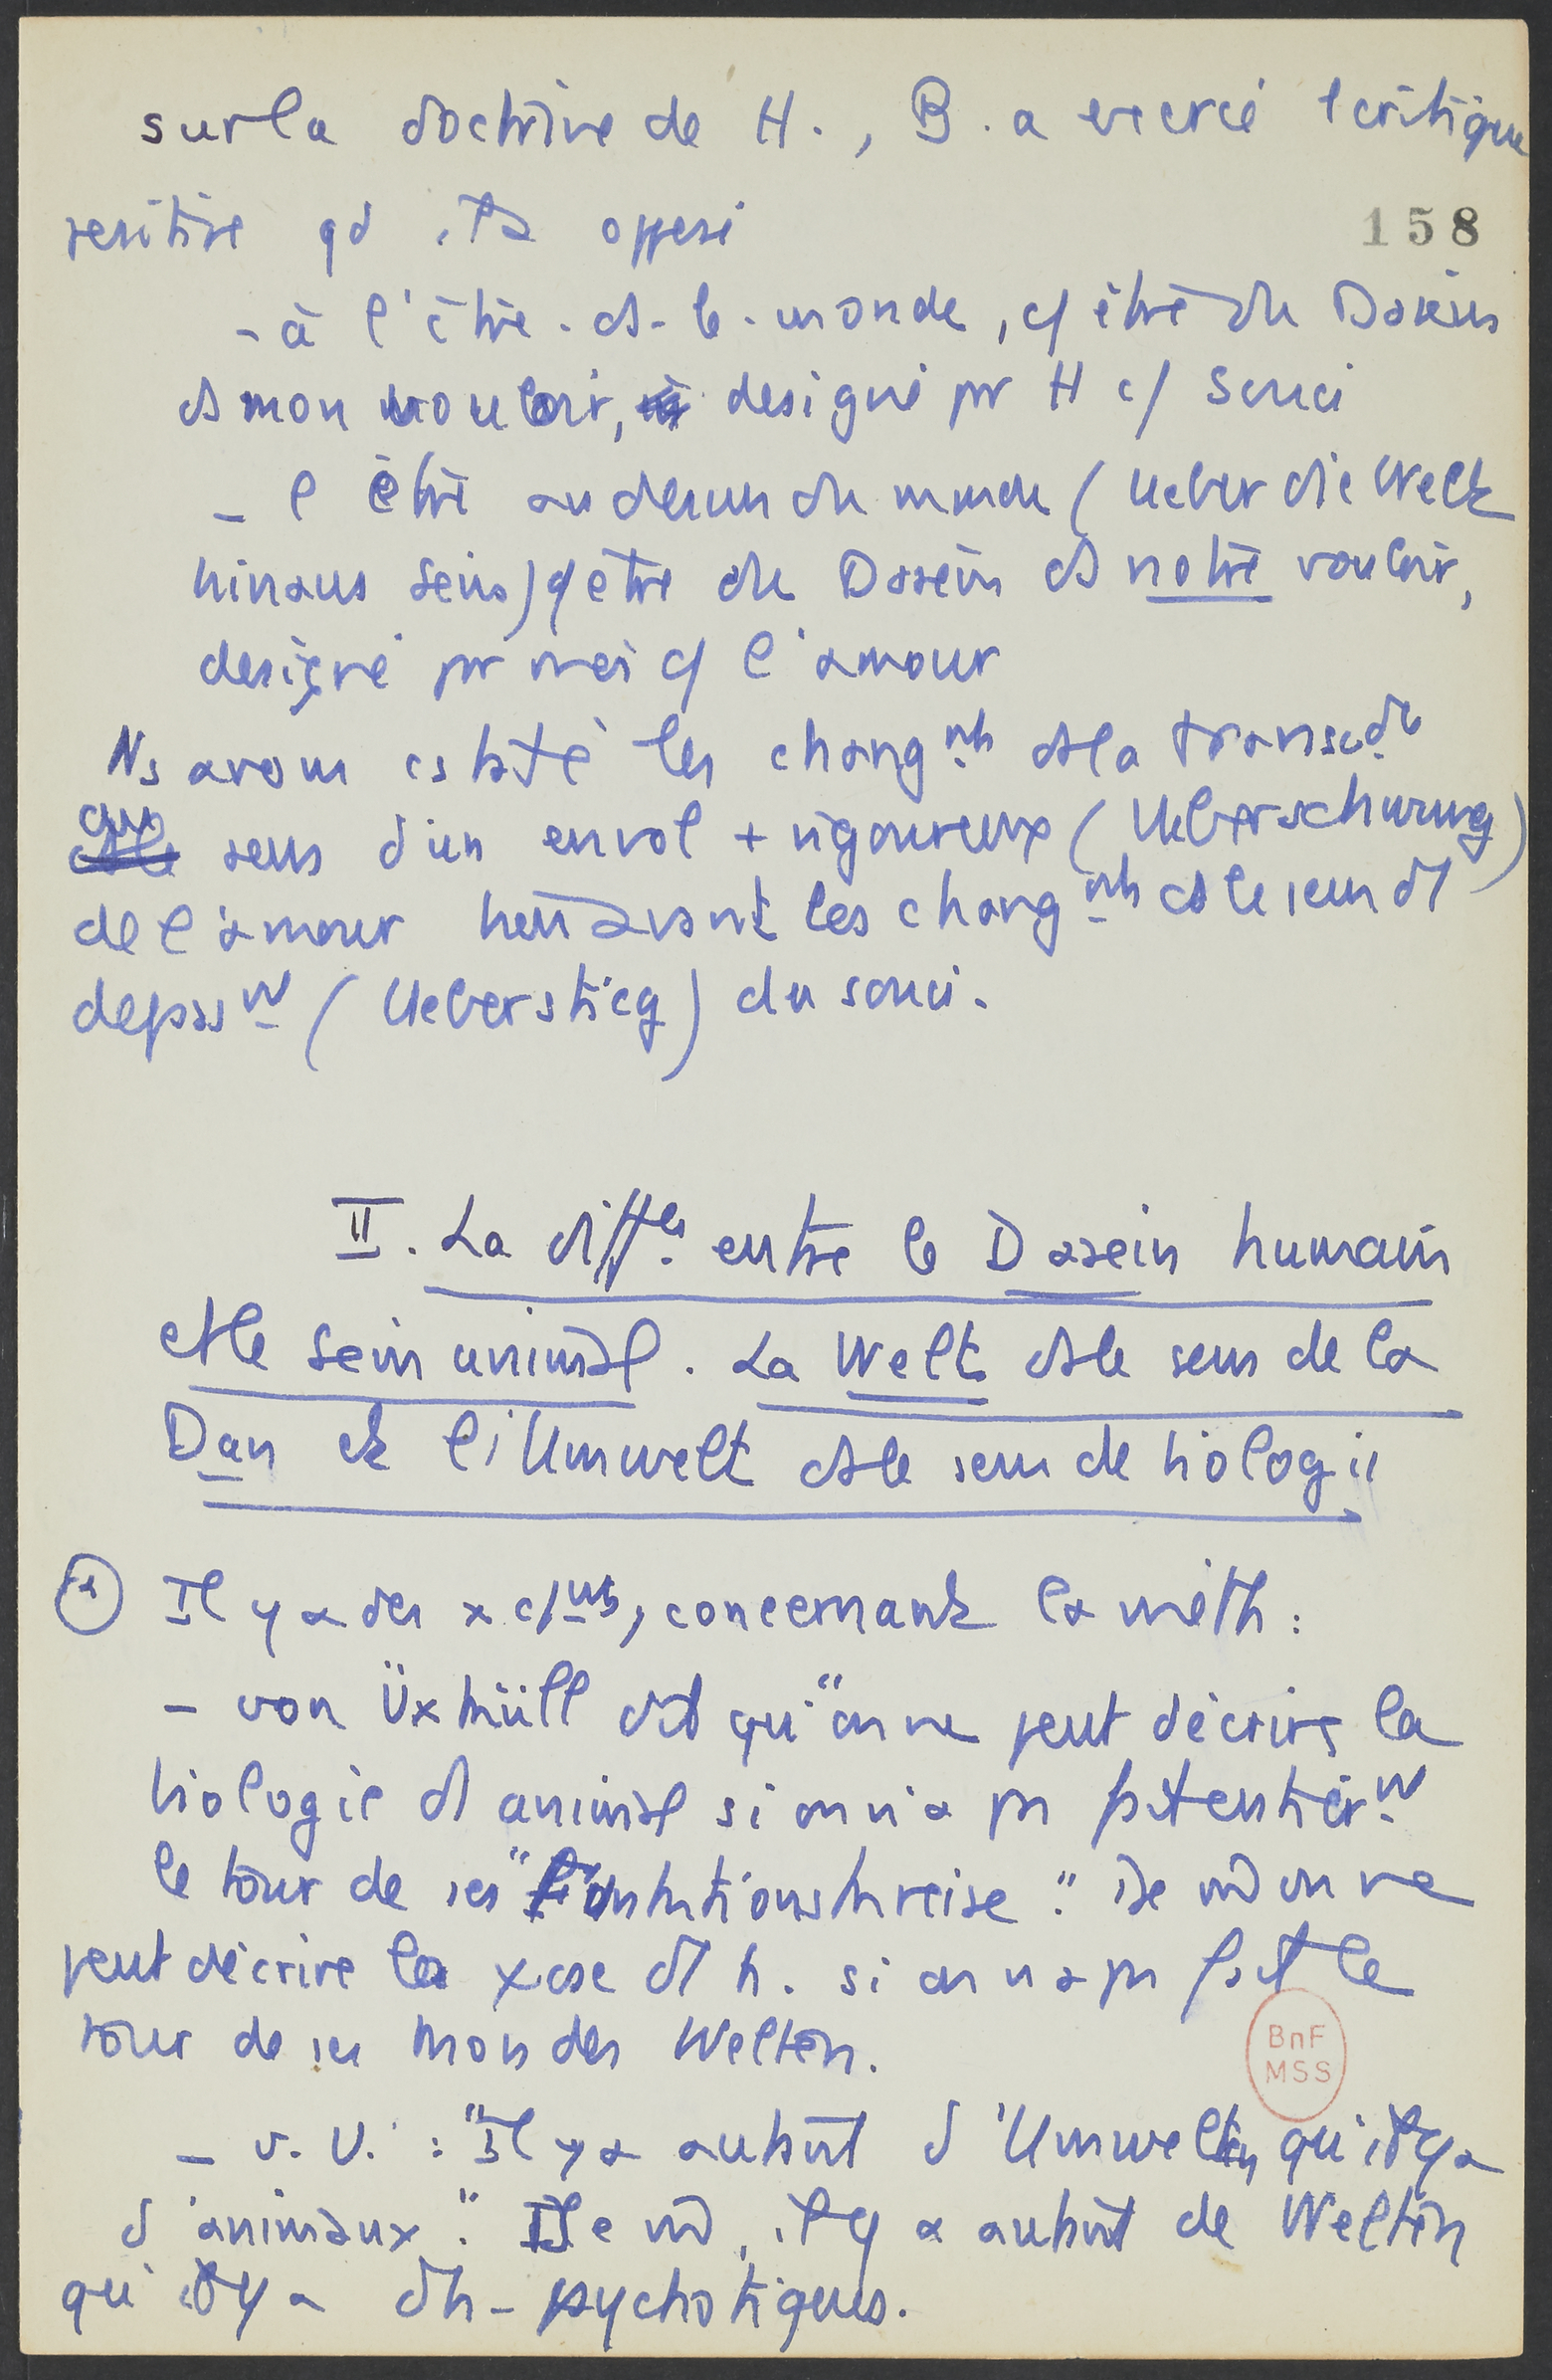 sur la doctrine de H., B. a exercé 1 critique
positive qd il a opposé
158
- à l'être-ds-le-monde, c/ être du Dasein
ds mon vouloir, designé pr H c/ Souci
- l'être au dessus du monde (Ueber die Welt
hinaus sein) c/ être du Dasein ds notre vouloir,
designé pr moi c/ l'amour
Ns avons cstaté les changmts ds la transcdce
au sens d'un envol + vigoureux (Ueberschwung)
de l'amour avant les changmts ds le sens d'1
depassmt (Ueberstieg) du souci.
II. La diffce entre le Dasein humain
et le Sein animal. La Welt ds le sens de la
Dan et l'Umwelt ds le sens de biologie
① Il y a des x c/uns, concernant la méth :
- von Üxküll dit qu'"on ne peut décrire la
biologie d'1 animal si on n'a pas fait entièrmt
le tour de ses "Funktionskreise". De m on ne
peut décrire la d'1 h. si on n'a pas fait le
tour de ses mondes Welten.
- v. U. : "Il y a autant d'Umwelten qu'il y a
d'animaux". De m, il y a autant de Welten
qu'il y a d'h - psychotiques.
BnF
MSS